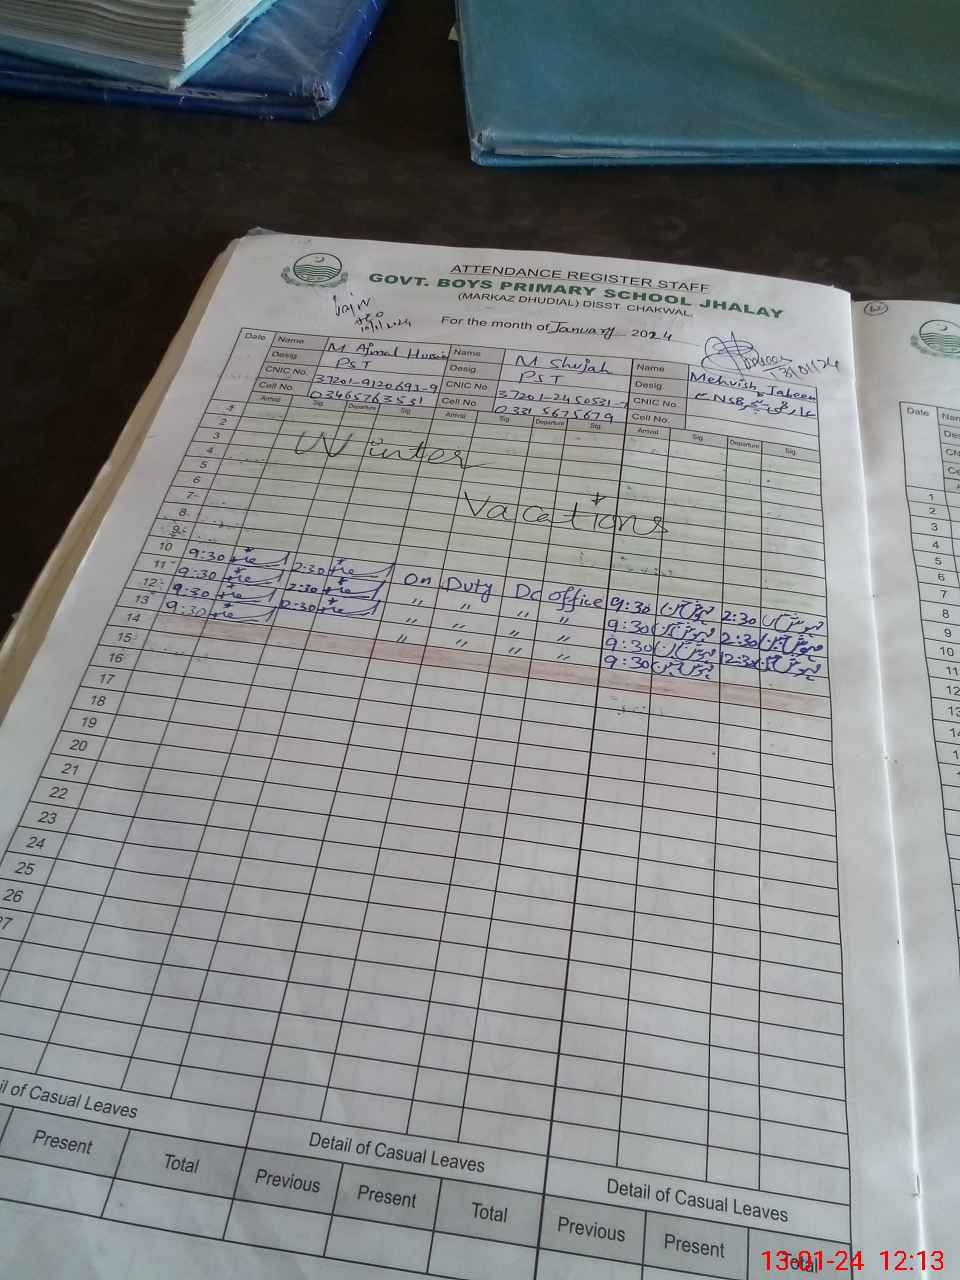 ATTENDANCE REGISTER STAFF
GOVT. BOYS PRIMARY SCHOOL JHALAY
(MARKAZ DHUDIAL) DISST CHAKWAL.
For the month of January 2024
Date Name M Ajmal Hussain Name M Shujah Name Mehvish Jabeen
Desig. PST Desig. PST Desig.
CNIC No. 37201-9120693-9 CNIC No. 37201-2450531-7 CNIC No.
Cell No. 03465763531 Cell No. 0331 5675679 Cell No.
Arrival Sig. Departure Sig. Arrival Sig. Departure Sig. Arrival Sig. Departure Sig.
1
2
3
4 Winter
5
6
7 Vacations
8
9
10 9:30 2:30 On Duty Dc Office 9:30 2:30
11 9:30 2:30 " " " " 9:30 2:30
12 9:30 2:30 " " " " 9:30 2:30
13 9:30 12:30 " " " " 9:30 12:30
14
15
16
17
18
19
20
21
22
23
24
25
26
27
il of Casual Leaves Detail of Casual Leaves Detail of Casual Leaves
Present Total Previous Present Total Previous Present Total
Date
1
2
3
4
5
6
7
8
9
10
11
12
13
13-01-24 12:13